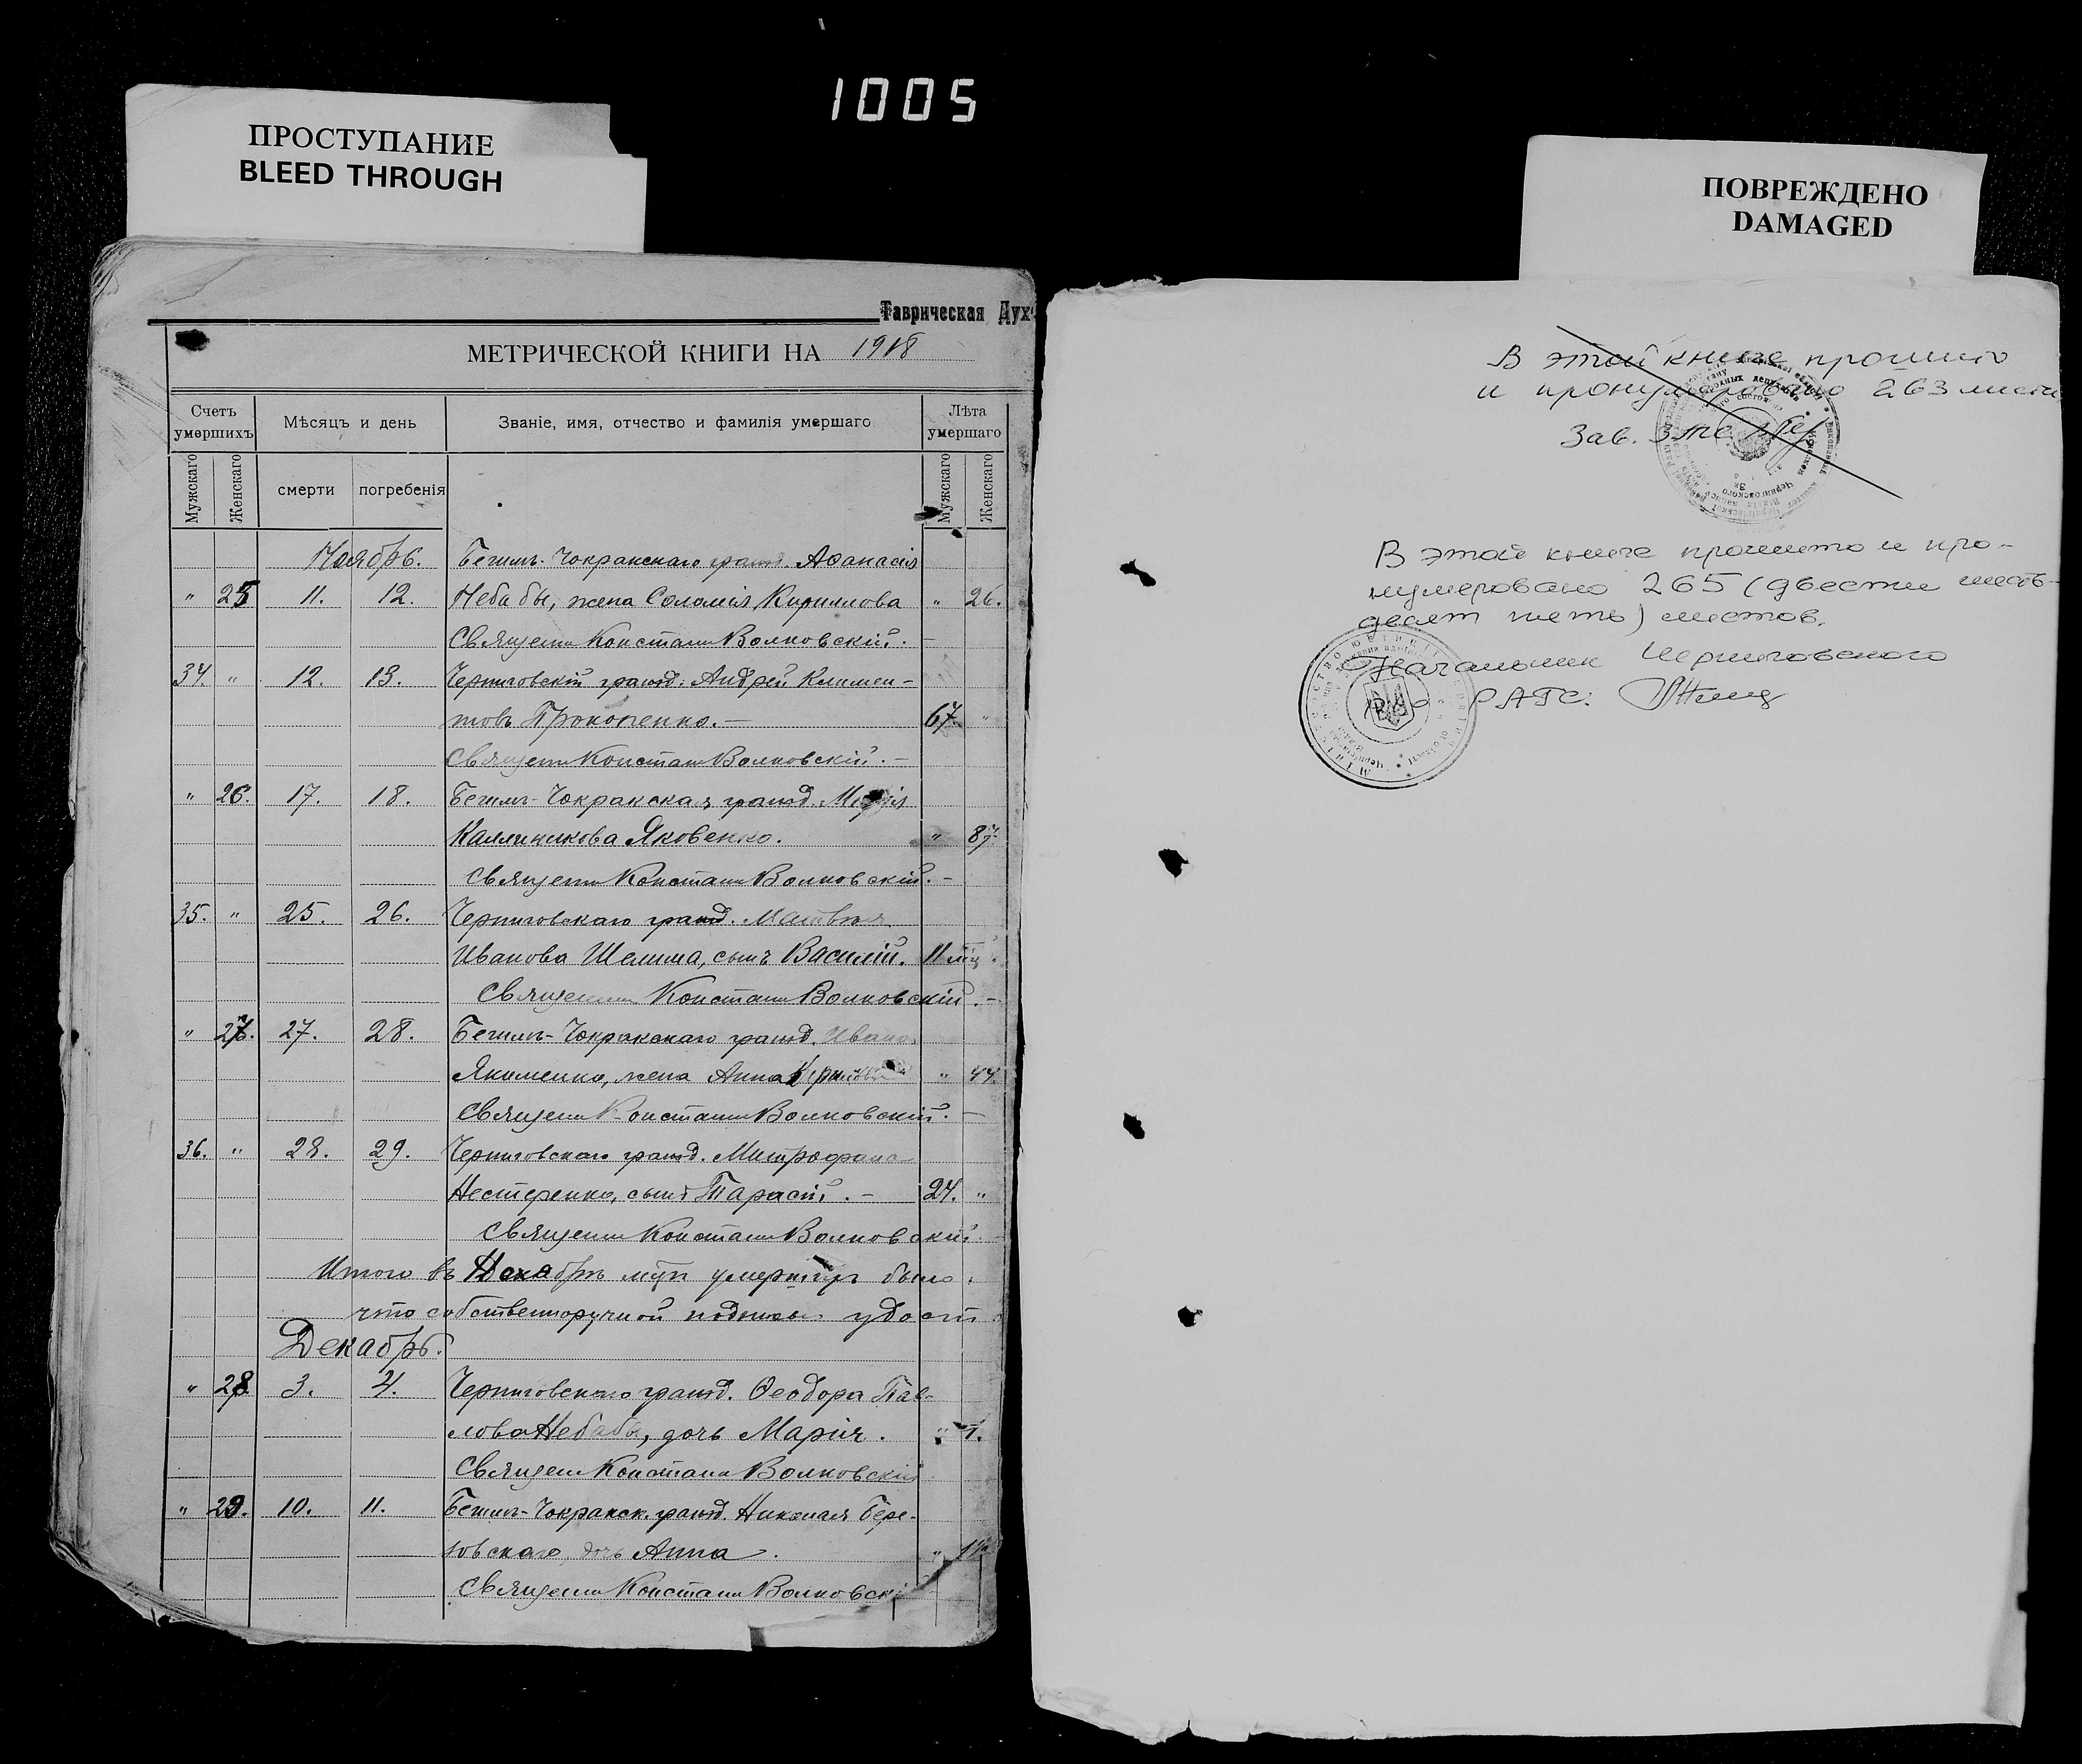 1005
ПРОСТУПАНИЕ
BLEED THROUGH
ПОВРЕЖДЕНО
DAMAGED
Таврическая Дух
МЕТРИЧЕСКОЙ КНИГИ НА 1918
Счетъ умершихъ
Мѣсяцъ и день
Званіе, имя, отчество и фамилія умершаго
Лѣта умершаго
Мужскаго
Женскаго
смерти
погребенія
Мужскаго
Женскаго
Ноябрь. Бегимъ-Чокракскаго гражд. Аѳанасія
" 25 11. 12. Небабы, жена Соломія Кириллова " 26.
Священ Констант Волковскій.
34. " 12. 13. Черниговскій гражд. Андрей Климен-
товъ Прокопенко. — 67. "
Священ Констант Волковскій. —
" 26. 17. 18. Бегимъ-Чокракская гражд.
Каллиникова Яковенко. " 87.
Священ Констант Волковскій. —
35. " 25. 26. Черниговскаго гражд. Матвѣя
Иванова Шелима, сынъ Василій. 11 мц.
Священ Констант Волковскій. —
" 27. 28. Бегимъ-Чокракскаго гражд. Ивана
Якименко, жена Анна " 44.
Священ Констант Волковскій. —
36. " 28. 29. Черниговскаго гражд. Митрофана
Нестеренко, сынъ Тарасій. — 24. "
Священ Констант Волковскій.
Итого въ мцѣ умершихъ было
что собственноручной подписью удост
Декабрь.
" 28. 3. 4. Черниговскаго гражд. Ѳеодора Пав-
лова Небабы, дочь Марія. " 1.
Священ Констант Волковскій
" 29. 10. 11. Бегимъ-Чокракск. гражд. Николая Бере-
зовскаго, дочь Анна. "
Священ Констант Волковскі
В этой книге прошито
и пронумеровано 263 листа
Зав.
В этой книге прошито и про-
нумеровано 265 (двести шесть-
десят пять) листов.
Начальник Черниговского
РАГС: